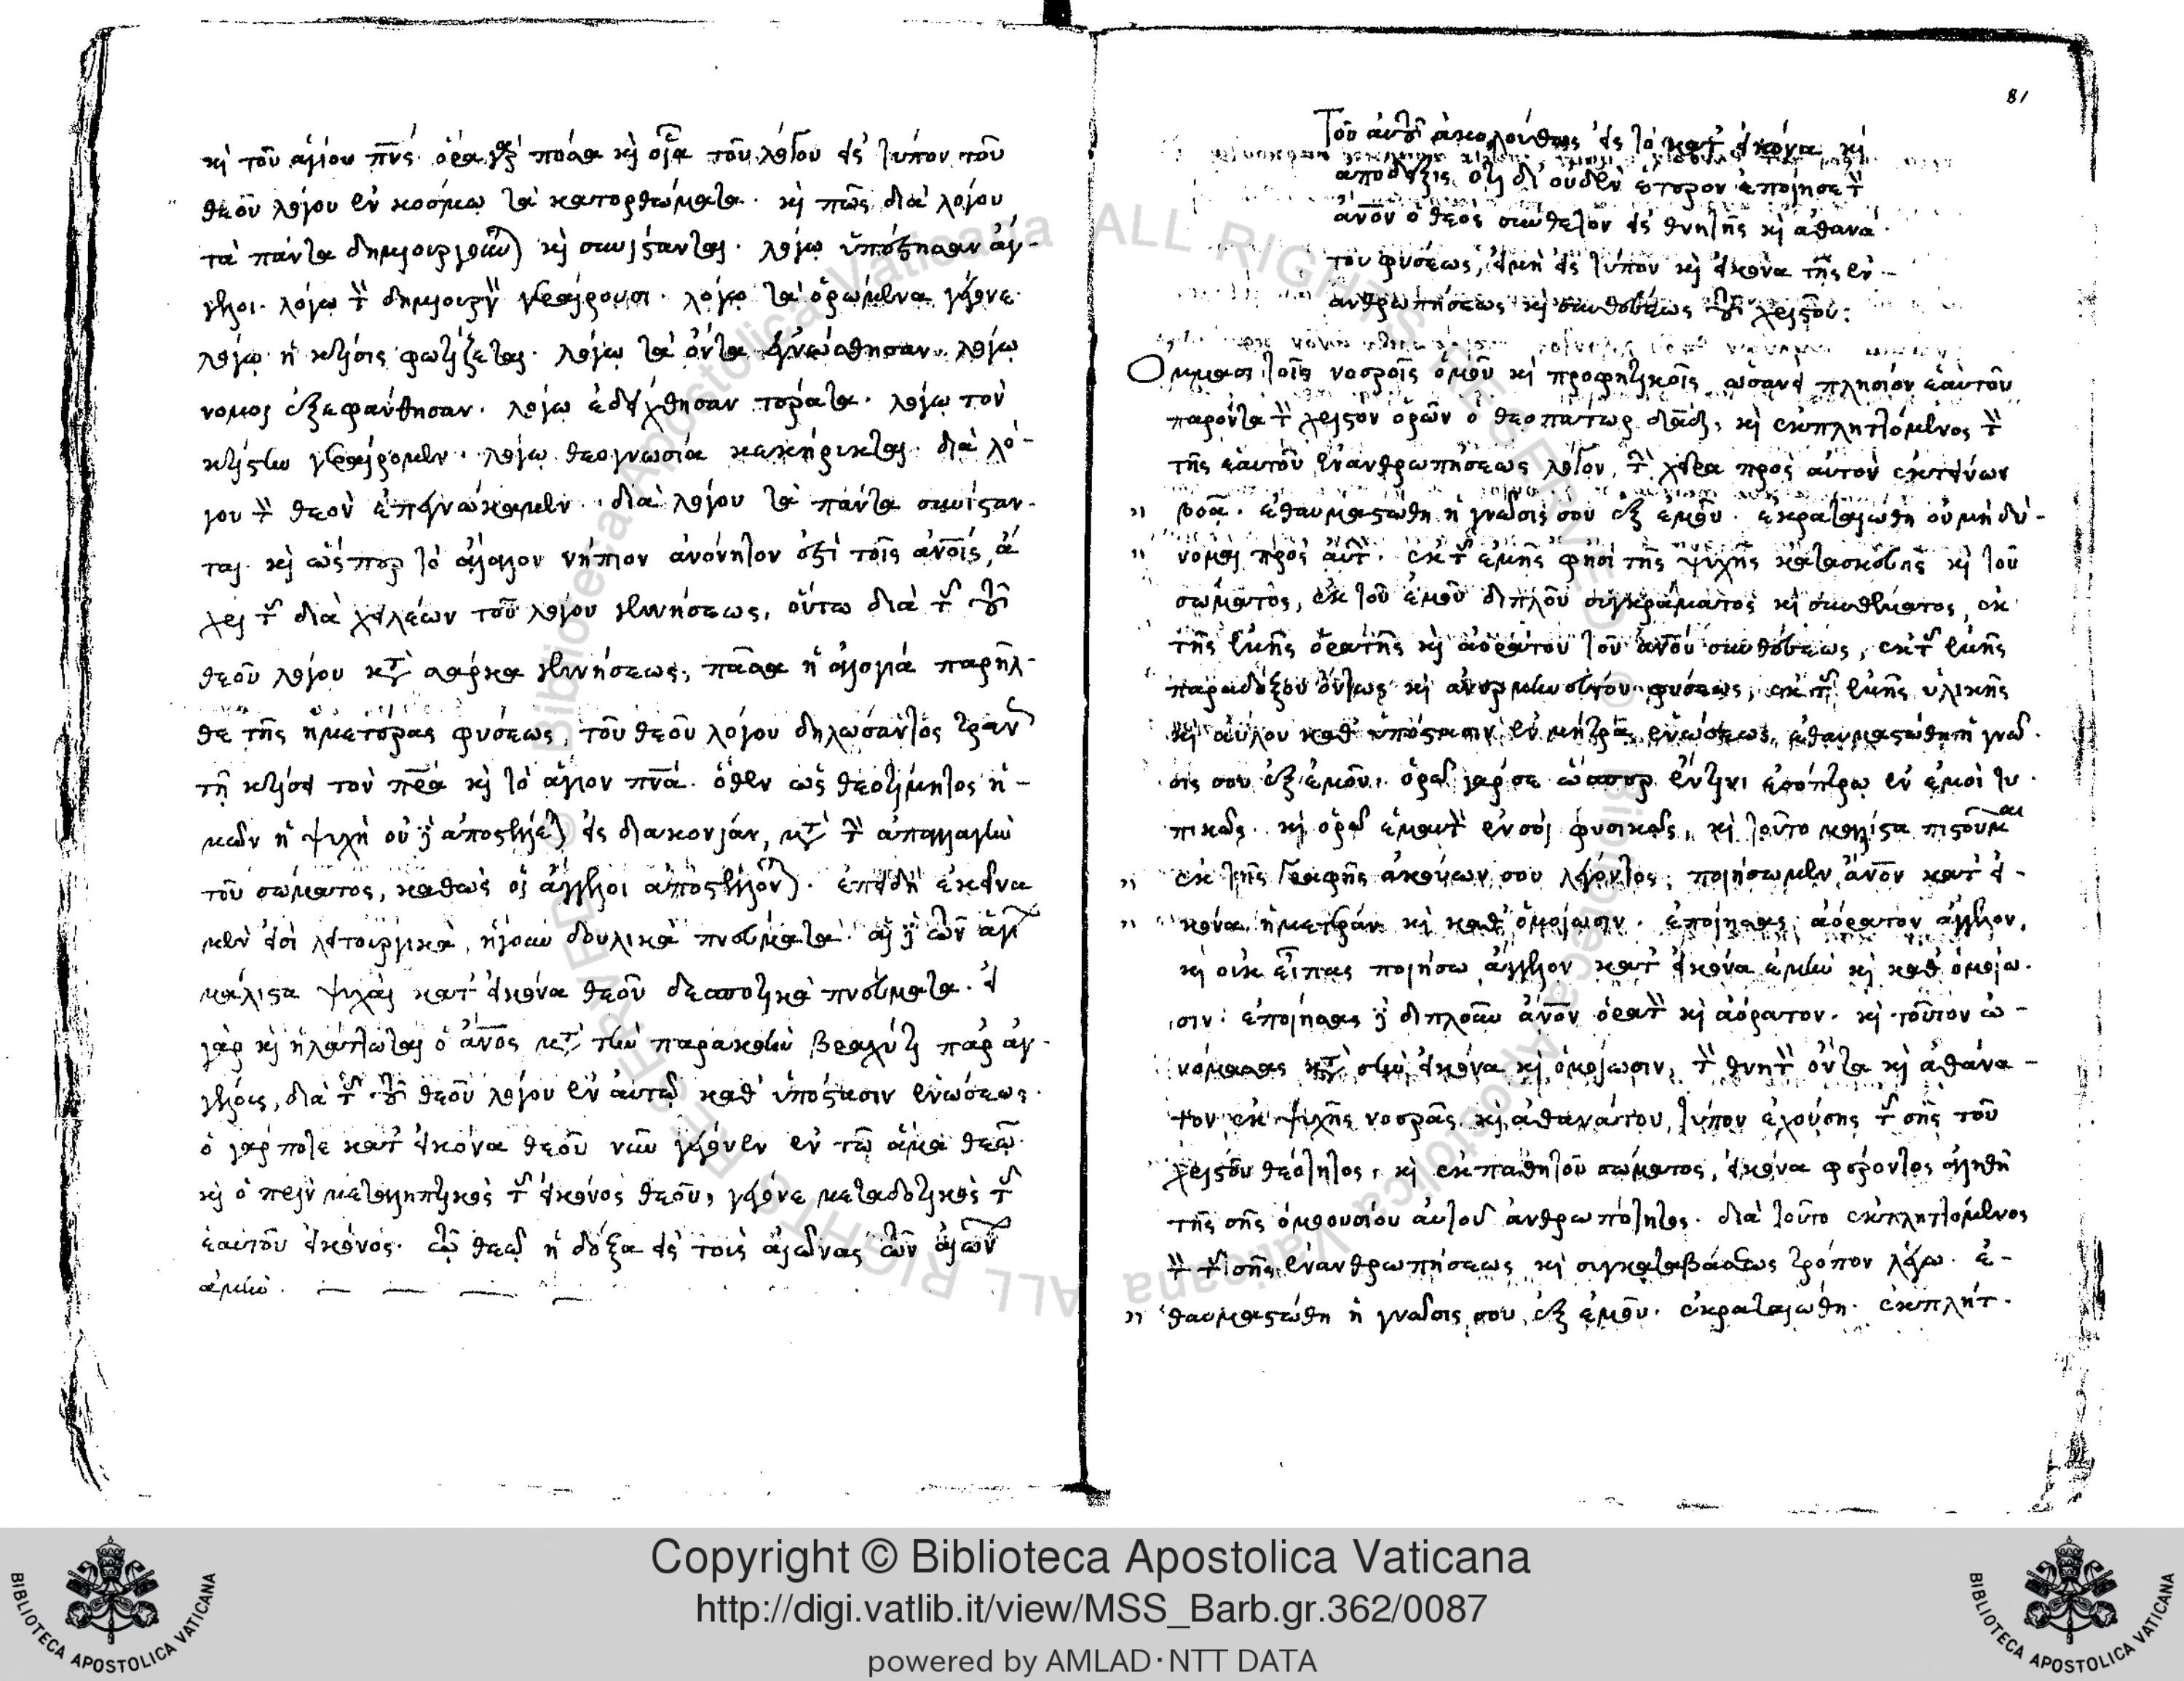 κὶ τοῦ ἁγίου πν̅ς· ὅρα γὰρ πόσα κὶ οἷα τοῦ λόγου εἰς τύπον τοῦ
θεοῦ λόγου ἐν κόσμω τὰ κατορθώματα· κὶ πῶς διὰ λόγου
τὰ πάντα δημιουργοῦν) κὶ συνίστανται· λόγω ὑπέστησαν ἄγ-
γελοι· λόγω τὸν δημιουργὸν γεραίρουσι· λόγω τὰ ὁρώμενα γέγονε·
λόγω ἡ κτίσις φωτίζεται· λόγω τὰ ὄντα ἐγνώσθησαν· λόγω
νόμοι ἐξεφάνθησαν· λόγω ἐδείχθησαν τέρατα· λόγω τὸν
κτίστην γεραίρομεν· λόγω θεογνωσία κεκήρυκται· διὰ λό-
γου τὸν θεὸν ἐπεγνώκαμεν· διὰ λόγου τὰ πάντα συνίσταν-
ται· κὶ ὥσπερ τὸ ἄλογον νήπιον ἀνόνητον ἐστὶ τοῖς ἀν̅οις, ἄ
χρι τῆς διὰ χειλέων τοῦ λόγου γεννήσεως, οὕτω διὰ τῆς τοῦ
θεοῦ λόγου κατὰ σάρκα γεννήσεως, πᾶσα ἡ ἀλογία παρῆλ-
θε τῆς ἡμετέρας φύσεως, τοῦ θεοῦ λόγου δηλώσαντος τραν
τῆ κτίσει τὸν πρ̅α κὶ τὸ ἅγιον πν̅α· ὅθεν ὡς θεοτίμητος ἡ-
μῶν ἡ ψυχὴ οὐ δὲ ἀποστέλλε) εἰς διακονίαν, μετὰ τὴν ἀπαλλαγὴν
τοῦ σώματος, καθὼς οἱ ἄγγελοι ἀποστέλλον)· ἐπειδὴ ἐκεῖνα
μὲν εἰσὶ λειτουργικὰ, ἤγουν δουλικὰ πνεύματα· αἱ δὲ τῶν ἁγί
μάλιστα ψυχαὶ κατ' εἰκόνα θεοῦ δεσποτικὰ πνεύματα· εἰ
γὰρ κὶ ἠλάττωται ὁ ἄν̅ος μετὰ τὴν παρακοὴν βραχύ τι παρ' ἀγ-
γέλους, διὰ τῆς τοῦ θεοῦ λόγου ἐν αὐτῶ καθ' ὑπόστασιν ἑνώσεως·
ὁ γάρ ποτε κατ' εἰκόνα θεοῦ νῦν γέγονεν ἐν τῶ ἅμα θεῶ·
κὶ ὁ πρὶν μεταληπτικὸς τῆς εἰκόνος θεοῦ, γέγονε μεταδοτικὸς τῆς
ἑαυτοῦ εἰκόνος· τῶ θεῶ ἡ δόξα εἰς τοὺς αἰῶνας τῶν αἰών
ἀμήν.
81
Τοῦ αὐτοῦ ἀκολούθως εἰς τὸ κατ' εἰκόνα κὶ
ἀπόδειξις ὅτι δι' οὐδὲν ἕτερον ἐποίησε τὸν
ἄν̅ον ὁ θεὸς σύνθετον ἐκ θνητῆς κὶ ἀθανά-
του φύσεως, εἰμὴ εἰς τύπον κὶ εἰκόνα τῆς ἐν-
ανθρωπήσεως κὶ συνθέσεως τοῦ χριστοῦ:
Ὄμμασι τοῖς νοεροῖς ὁμοῦ κὶ προφητικοῖς ὡσανεὶ πλησίον ἑαυτοῦ
παρόντα τὸν χριστὸν ὁρῶν ὁ θεοπάτωρ δᾱδ, κὶ ἐκπληττόμενος τὸν
τῆς ἑαυτοῦ ἐνανθρωπήσεως λόγον, τὴν χεῖρα πρὸς αὐτὸν ἐκτείνων
" βοᾶ· ἐθαυμαστώθη ἡ γνῶσίς σου ἐξ ἐμοῦ· ἐκραταιώθη οὐ μὴ δύ-
" νομαι πρὸς αὐτήν· ἐκ τῆς ἐμῆς φησὶ τῆς ψυχῆς κατασκευῆς κὶ τοῦ
σώματος, ἐκ τοῦ ἐμοῦ διπλοῦ συγκράματος κὶ συνθέματος, ἐκ
τῆς ἐμῆς ὁρατῆς κὶ ἀοράτου τοῦ ἀν̅ου συνθέσεως, ἐκ τῆς ἐμῆς
παραδόξου ὄντως κὶ ἀνερμηνεύτου φύσεως, ἐκ τῆς ἐμῆς ὑλικῆς
κὶ ἀΰλου καθ' ὑπόστασιν ἐν μήτρα ἑνώσεως, ἐθαυμαστώθη ἡ γνῶ-
σίς σου ἐξ ἐμοῦ· ὁρῶ γάρ σε ὥσπερ ἔν τινι ἐσόπτρω ἐν ἐμοὶ τυ-
πικῶς· κὶ ὁρῶ ἐμαυτὸν ἐν σοὶ φυσικῶς, κὶ τοῦτο μάλιστα πιστοῦμαι
" ἐκ τῆς γραφῆς ἀκούων σου λέγοντος, ποιήσωμεν ἄν̅ον κατ' εἰ-
" κόνα ἡμετέραν κὶ καθ' ὁμοίωσιν· ἐποίησας ἀόρατον ἄγγελον,
κὶ οὐκ εἶπας ποιήσω ἄγγελον κατ' εἰκόνα ἐμὴν κὶ καθ' ὁμοίω-
σιν· ἐποίησας δὲ διπλοῦν ἄν̅ον ὁρατὸν κὶ ἀόρατον· κὶ τοῦτον ὠ-
νόμασας κατὰ σὴν εἰκόνα κὶ ὁμοίωσιν, τὸν θνητὸν ὄντα κὶ ἀθάνα-
τον ἐκ ψυχῆς νοερᾶς κὶ ἀθανάτου, τύπον ἐχούσης τῆς σῆς τοῦ
χριστοῦ θεότητος, κὶ ἐκ παθητοῦ σώματος, εἰκόνα φέροντος ἀληθῆ
τῆς σῆς ὁμοουσίου αὐτοῦ ἀνθρωπότητος· διὰ τοῦτο ἐκπληττόμενος
τὸν τῆς σῆς ἐνανθρωπήσεως κὶ συγκαταβάσεως τρόπον λέγω· ἐ-
" θαυμαστώθη ἡ γνῶσίς σου ἐξ ἐμοῦ· ἐκραταιώθη· ἐκπλήτ-
Copyright © Biblioteca Apostolica Vaticana
http://digi.vatlib.it/view/MSS_Barb.gr.362/0087
powered by AMLAD·NTT DATA
BIBLIOTECA APOSTOLICA VATICANA
BIBLIOTECA APOSTOLICA VATICANA